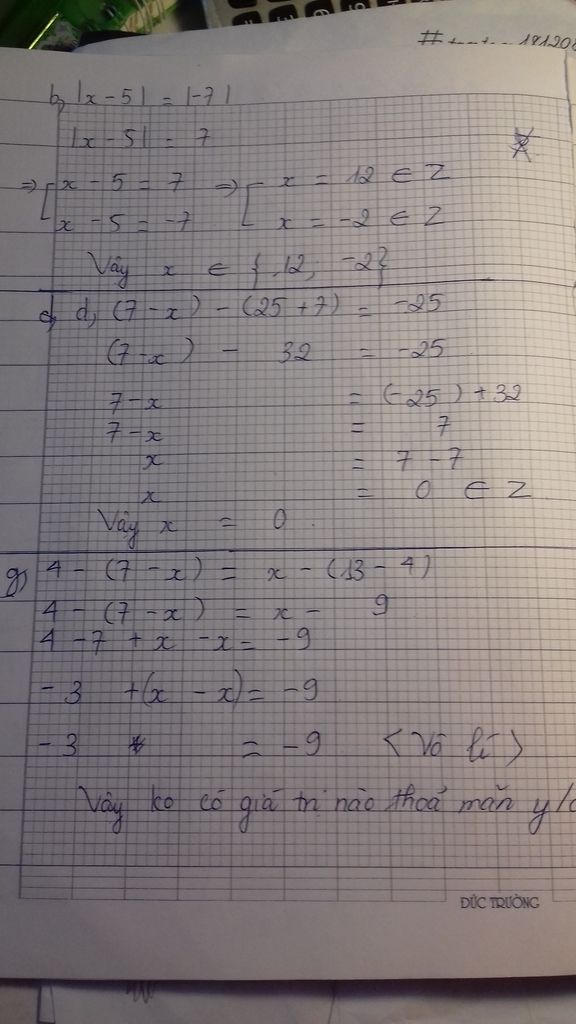 b, |x - 5| = |-7|
|x - 5| = 7
=> [ x - 5 = 7 => [ x = 12 ∈ Z
x - 5 = -7 x = -2 ∈ Z
Vây x ∈ { 12; -2}
d, (7 - x) - (25 + 7) = -25
(7 - x) - 32 = -25
7 - x = (-25) + 32
7 - x = 7
x = 7 - 7
x = 0 ∈ Z
Vây x = 0.
g) 4 - (7 - x) = x - (13 - 4)
4 - (7 - x) = x - 9
4 - 7 + x - x = -9
- 3 + (x - x) = -9
- 3 = -9 <Vô lí>
Vây ko có giá trị nào thoả mãn y/c
ĐỨC TRƯỜNG